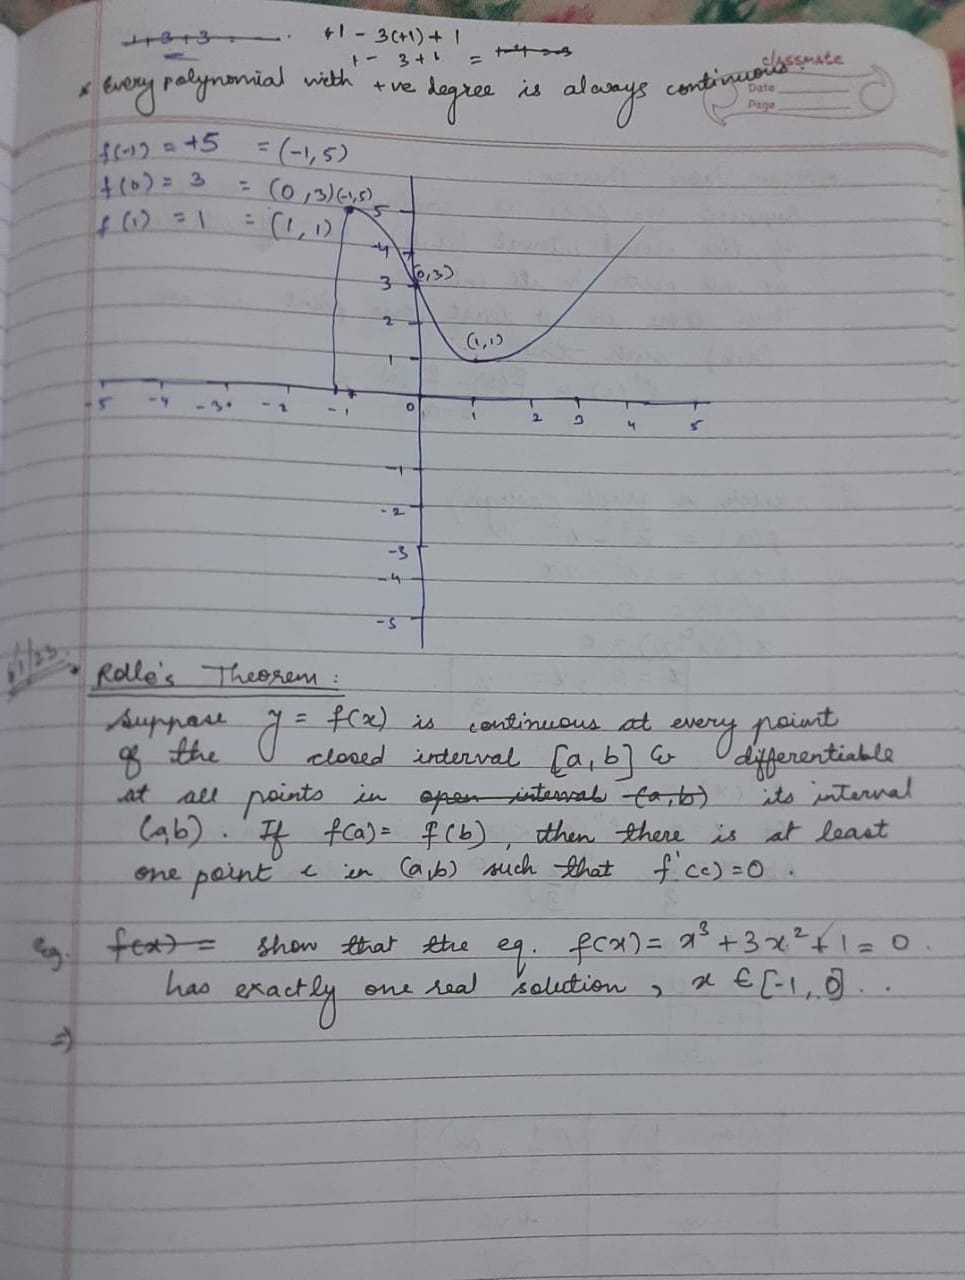 +1 - 3(+1) + 1
1 - 3 + 1 =
classmate
Date
Page
* Every polynomial with +ve degree is always continuous.
f(-1) = +5 = (-1, 5)
f(0) = 3 = (0, 3) (-1,5)
f(1) = 1 = (1, 1)
5
4
3
(0,3)
2
(1,1)
1
-5 -4 -3 -2 -1 0 1 2 3 4 5
-1
-2
-3
-4
-5
Rolle's Theorem :
Suppose y = f(x) is continuous at every point
of the closed interval [a, b] & differentiable
at all points in open interval (a, b) its interval
(a,b). If f(a) = f(b), then there is at least
one point c in (a,b) such that f'(c) = 0 .
Eg. f(x) = show that the eq. f(x) = x³ + 3x² + 1 = 0 .
has exactly one real solution, x ∈ [-1, 0] . .
⇒